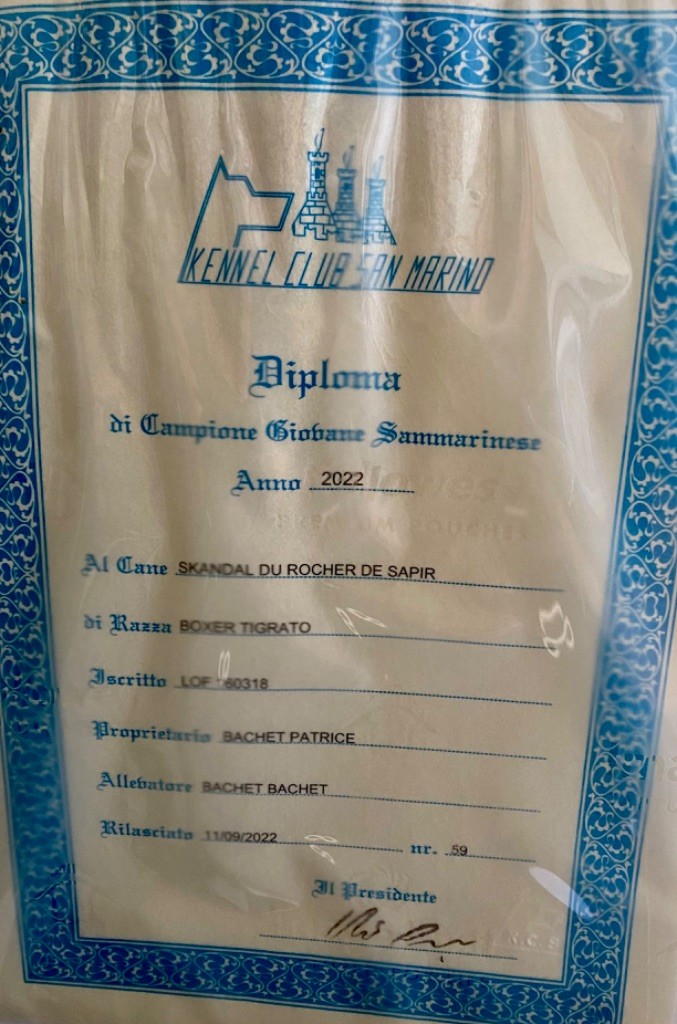 KENNEL CLUB SAN MARINO
Diploma
di Campione Giovane Sammarinese
Anno 2022
Al Cane SKANDAL DU ROCHER DE SAPIR
di Razza BOXER TIGRATO
Iscritto LOF
Proprietario BACHET PATRICE
Allevatore BACHET BACHET
Rilasciato 11/09/2022 nr. 59
Il Presidente